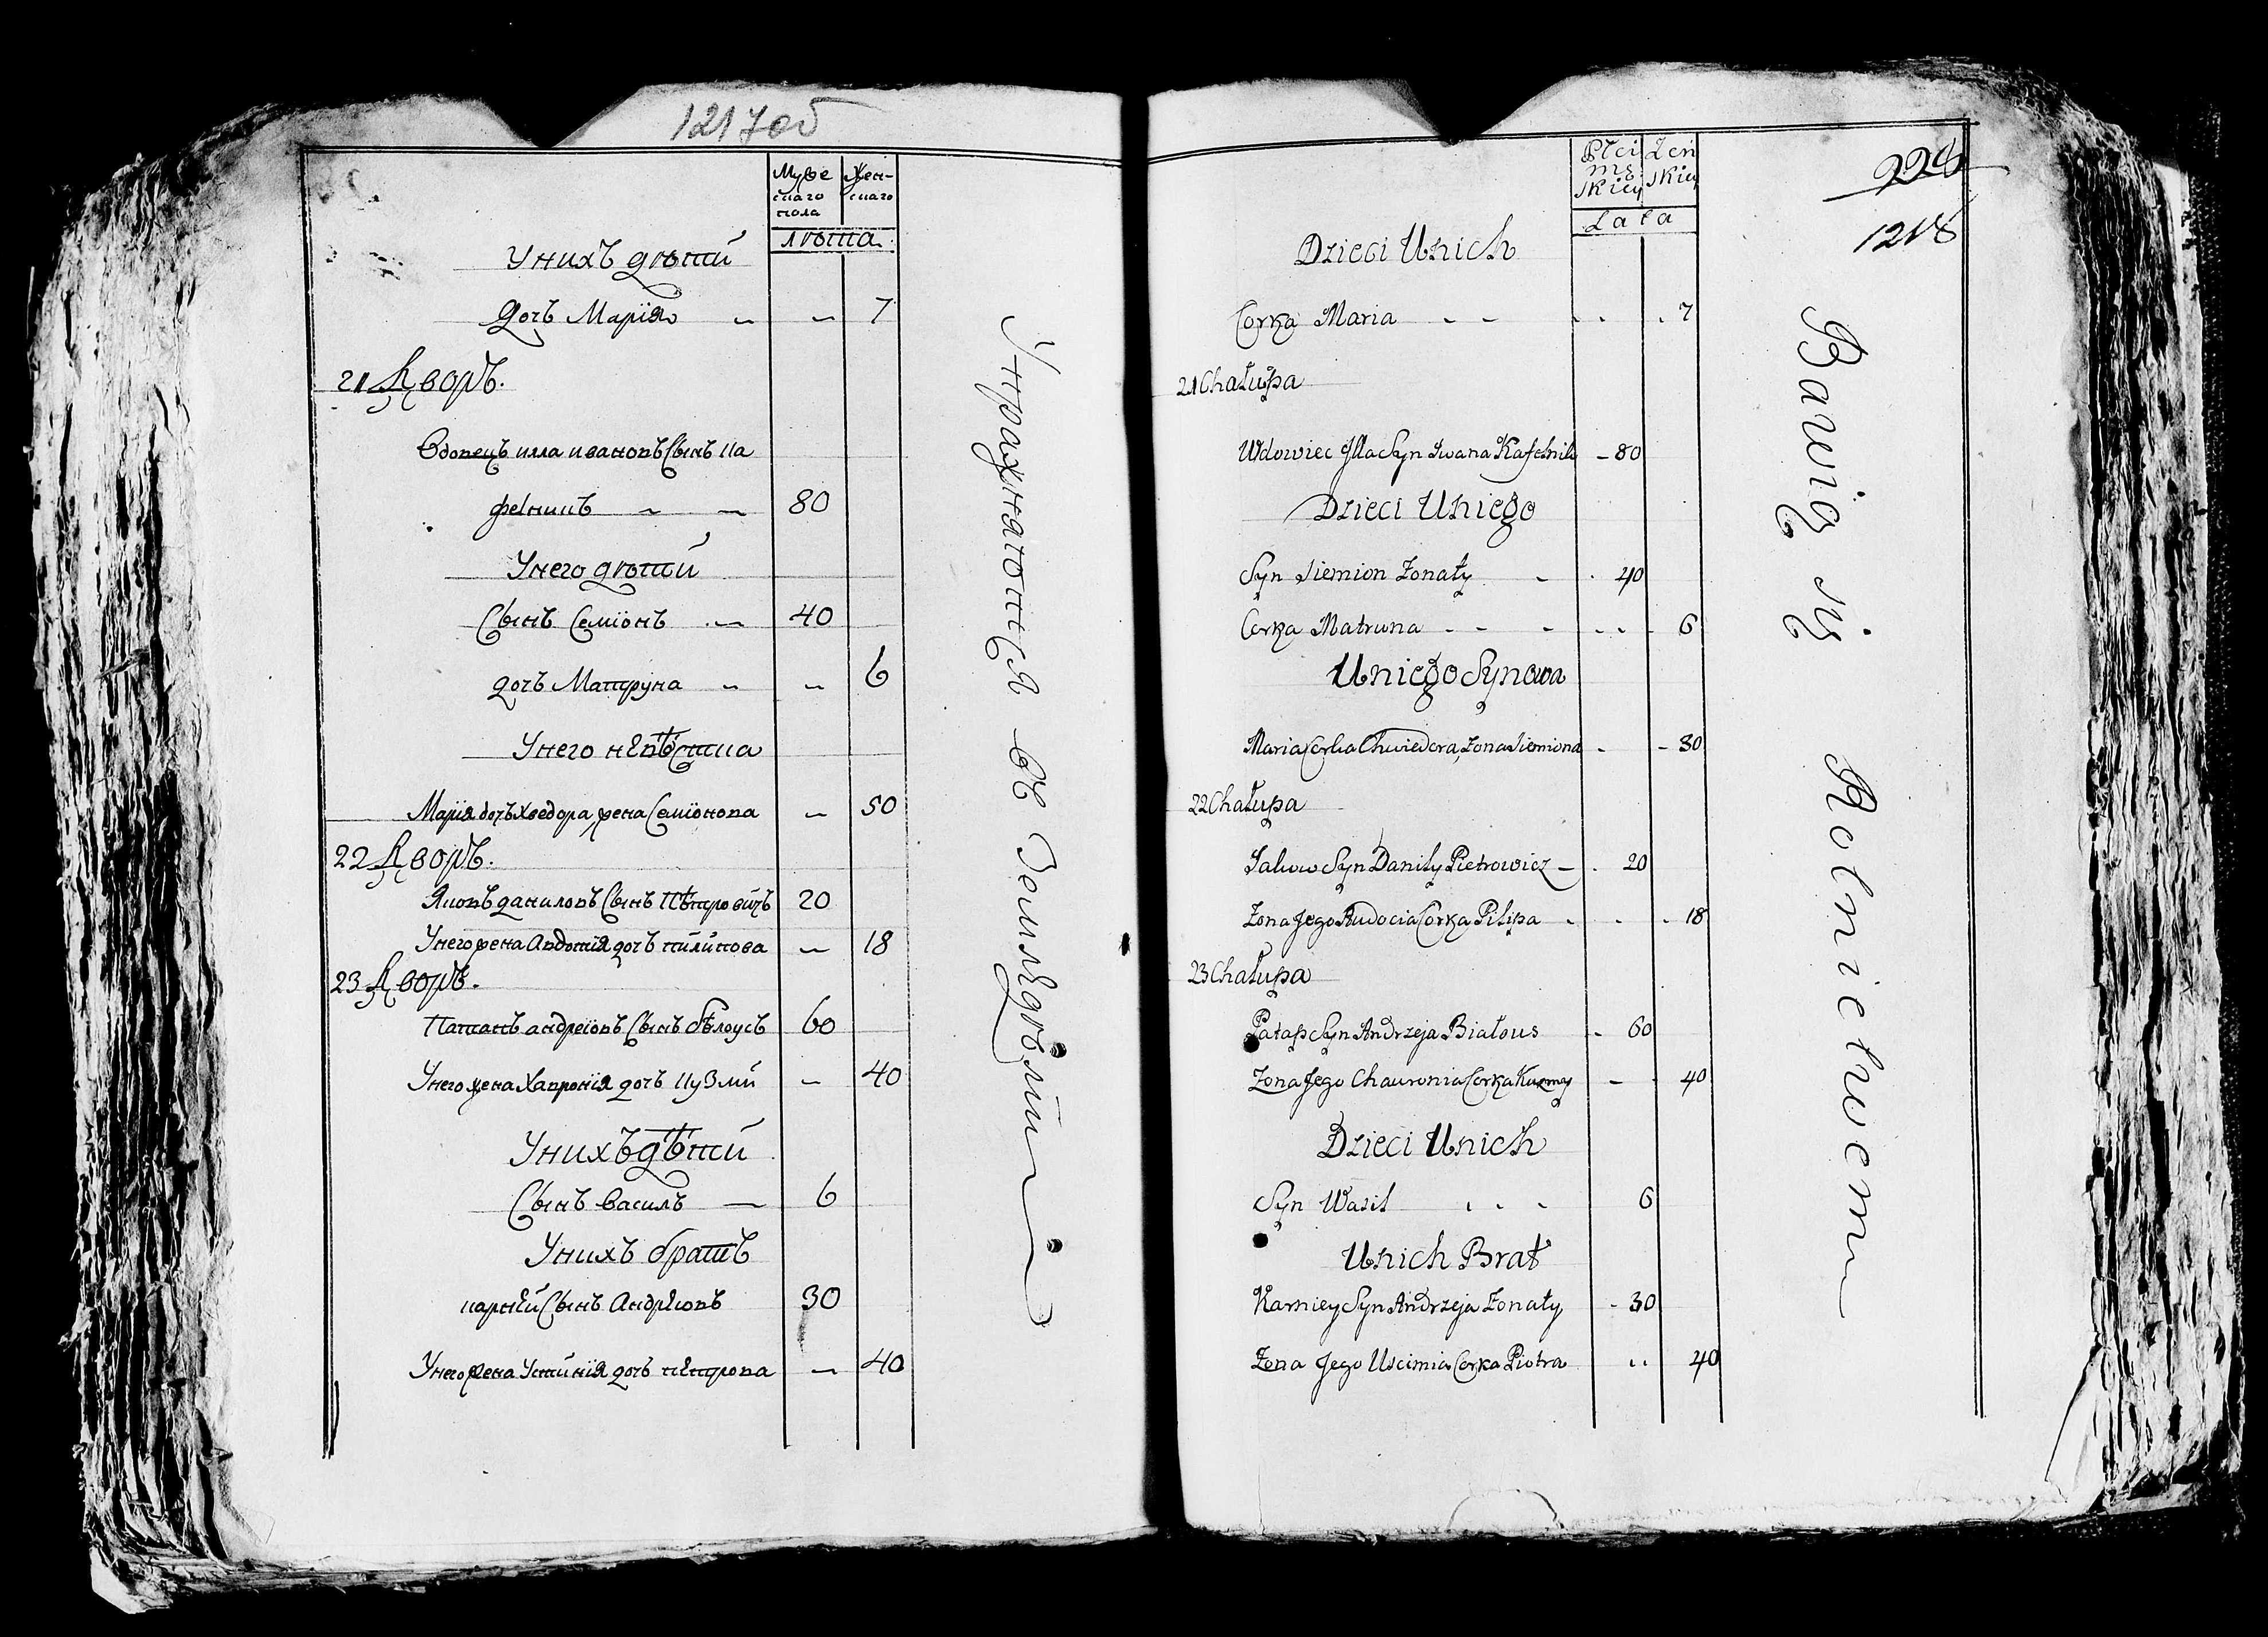 1217об
Мужескаго пола
Женскаго
лѣта
У нихъ дѣтй
дочь Марія 7
21 Дворъ.
Вдовецъ илла ивановъ Сынъ Ка
фелникъ 80
У него дѣтй
Сынъ Семіонъ 40
дочь Матруна 6
У него невѣстка
Марія дочь хведора, жена Семіонова 50
22 Дворъ.
Яковъ даниловъ Сынъ Пѣтровичъ 20
У него жена Авдотія дочь пилипова 18
23 Дворъ.
Патапъ андреювъ Сынъ бѣлоусъ 60
У него жена Хавронія дочь Кузми 40
У нихъ дѣтй
Сынъ василъ 6
У нихъ братъ
карнѣй Сынъ Андрѣювъ 30
У него жена Устинія дочь пѣтрова 40
Упражнаются въ Земледѣлїи
228
1218
Płci męskiey
Żeńskiey
Lata
Dzieci U nich
Corka Maria 7
21 Chałupa
Wdowiec Jlla Syn Iwana Kafelnik 80
Dzieci U niego
Syn Siemion Żonaty 40
Corka Matruna 6
U niego Synowa
Maria Corka Chwiedora, Żona Siemiona 30
22 Chałupa
Jakow Syn Daniły Pietrowicz 20
Żona Jego Audocia Corka Pilipa 18
23 Chałupa
Patap Syn Andrzeja Białous 60
Żona Jego Chauronia Corka Kuzmy 40
Dzieci U nich
Syn Wasil 6
U nich Brat
Karniey Syn Andrzeja Żonaty 30
Żona Jego Uscimia Corka Piotra 40
Bawią się Rolnictwem